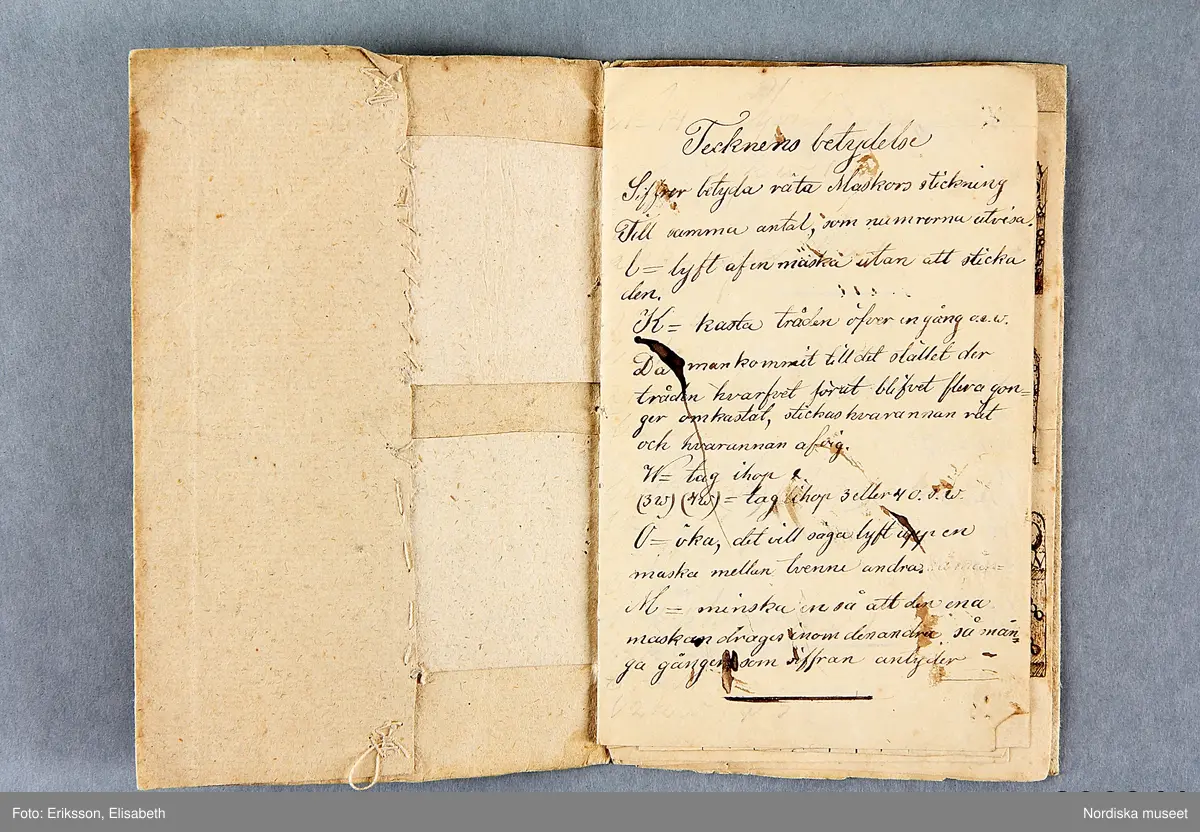 Tecknens betydelse
Siffror betyda räta Maskors stickning
Till samma antal, som numrorna utvisa.
l = lyft af en mäska utan att sticka
den.
K = kasta tråden öfver en gång o.s.w.
Då man kommit till det stället der
tråden hvarfvet förut blifvet flera gon=
ger omkastat, stickas hvarannan rät
och hvarannan afvig.
W = tag ihop 2.
(3w) (4w) = tag ihop 3 eller 4 o.s.w.
Ö = öka, det vill säga lyft upp en
maska mellan tvenne andra.
M = minska en så att den ena
maskan drages inom den andra så mån=
ga gånger som siffran antyder
Foto: Eriksson, Elisabeth
Nordiska museet